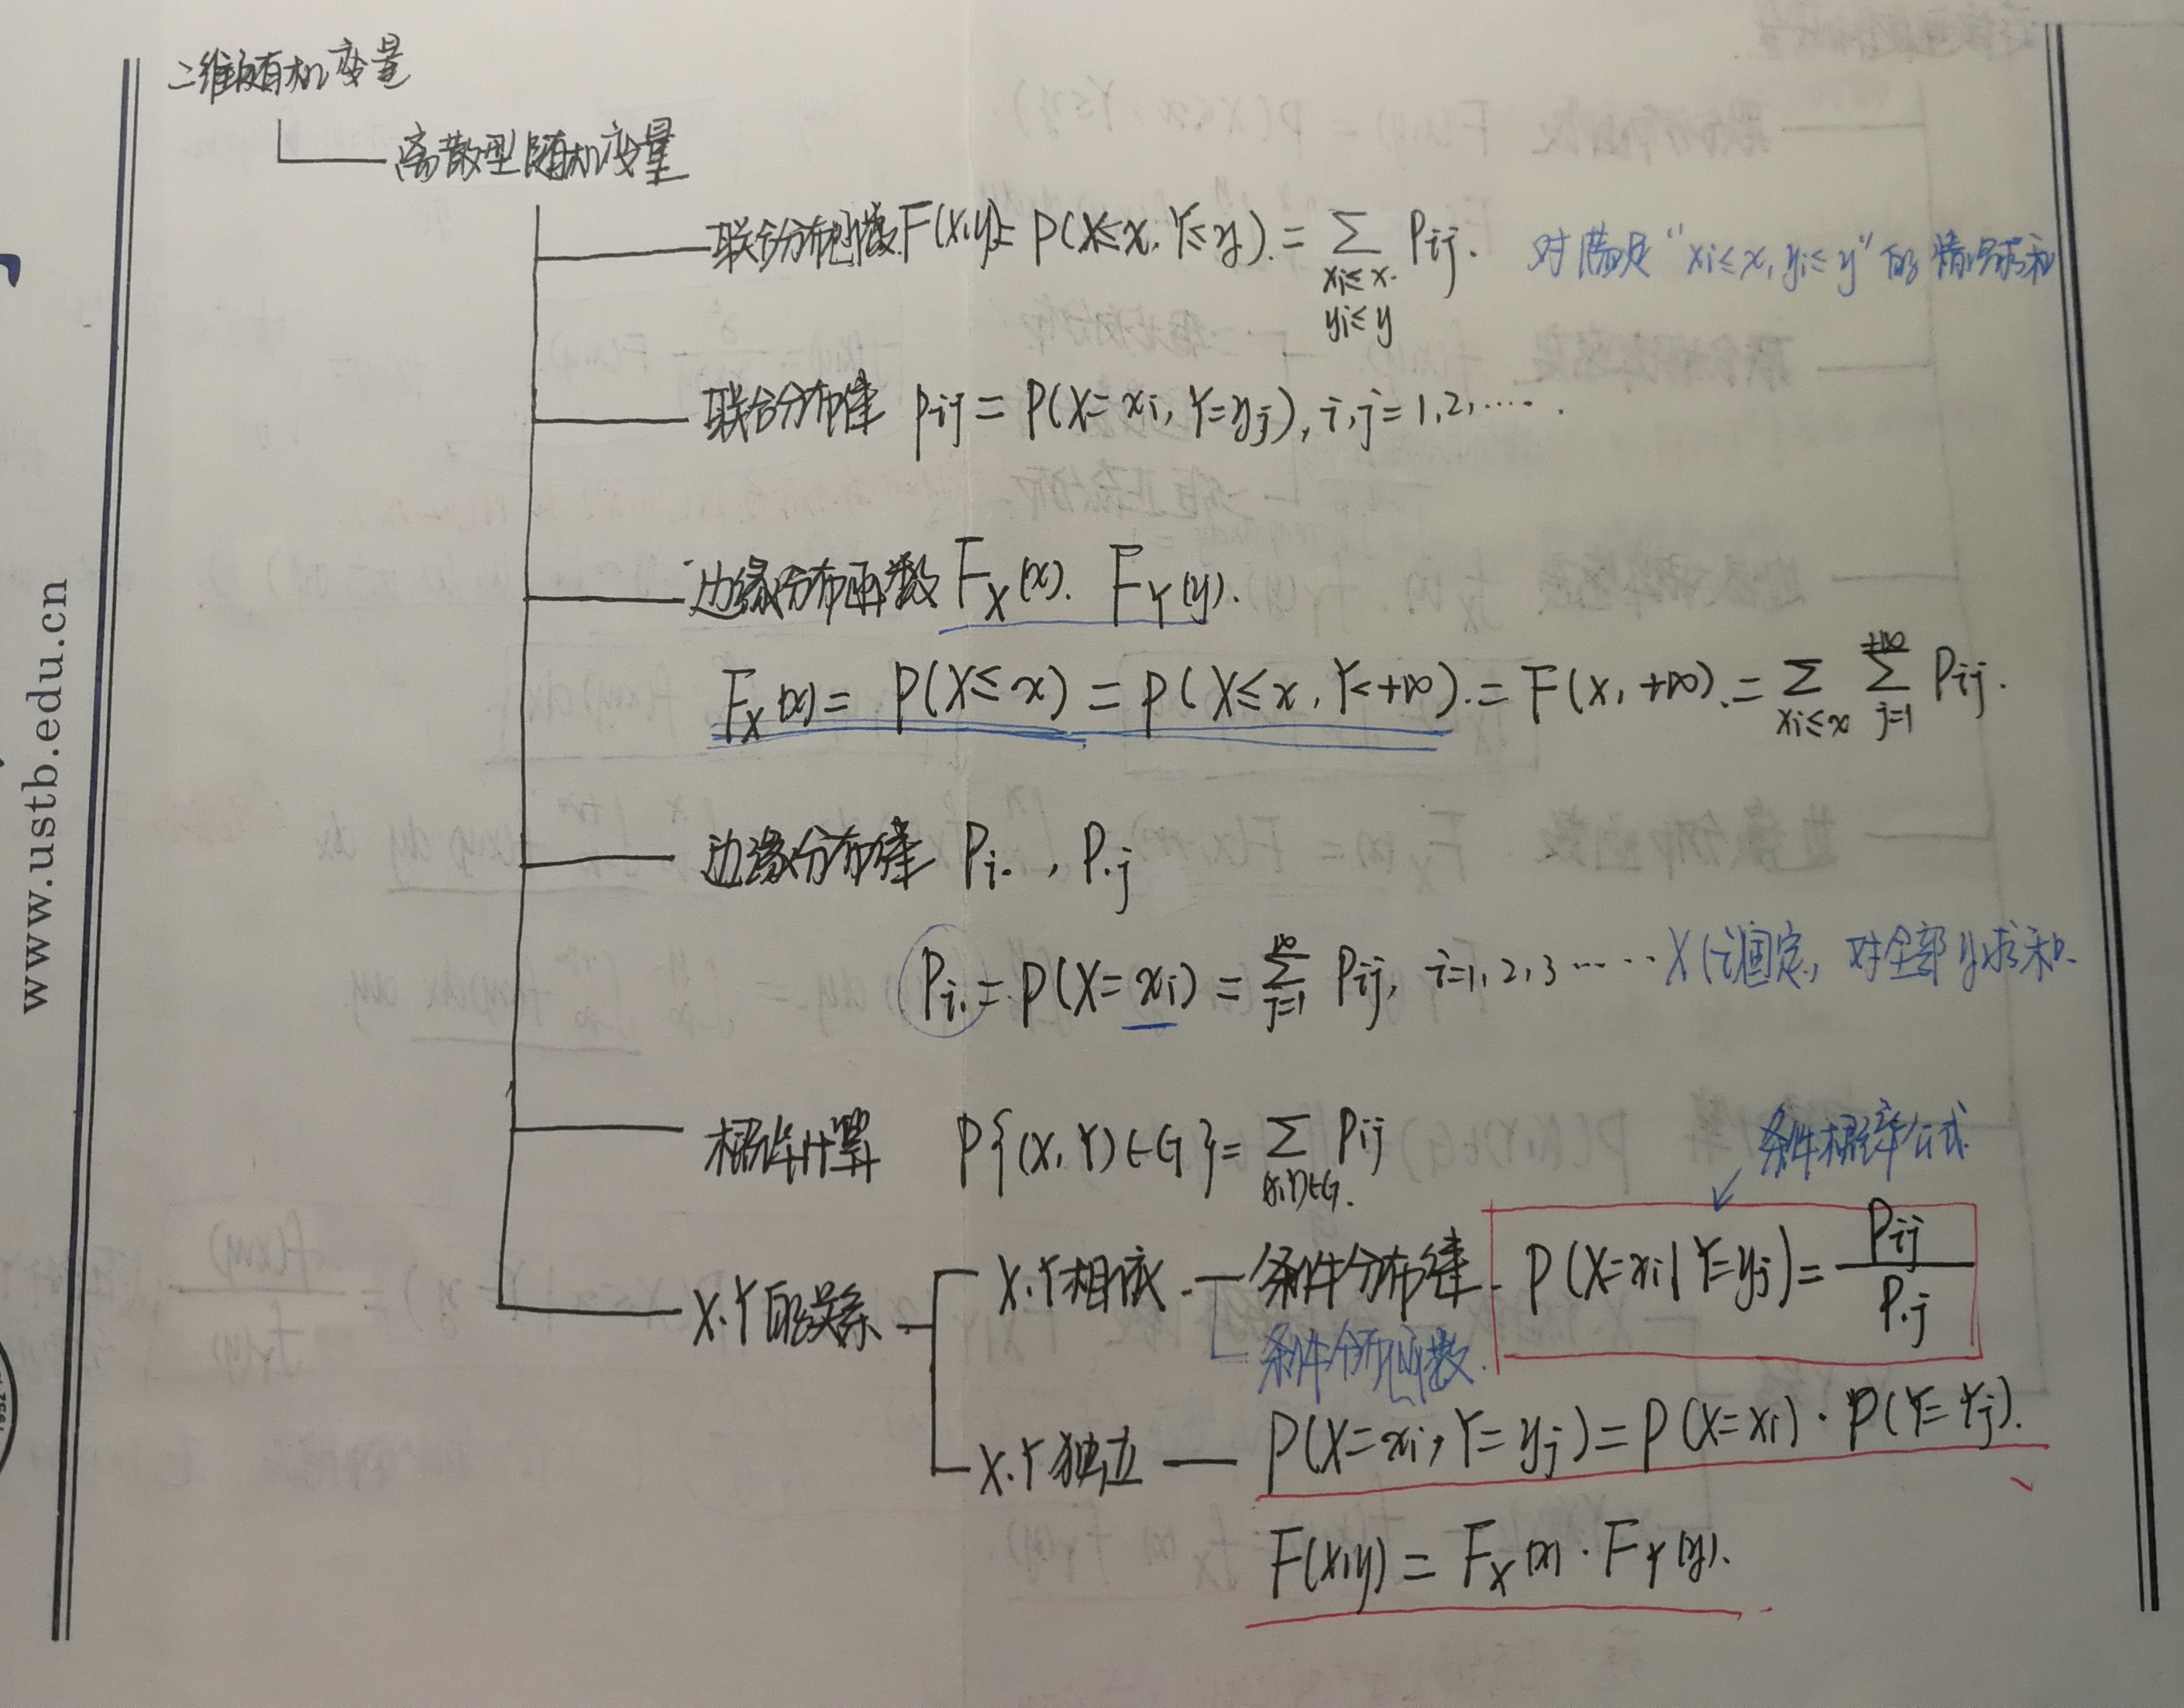 二维随机变量
离散型随机变量
联合分布函数 F(x,y)= P(X≤x, Y≤y).= ∑ Pij. 对满足“xi≤x, yi≤y”的情况求和
xi≤x.
yi≤y
联合分布律 pij = P(X=xi, Y=yj), i,j=1,2,…….
边缘分布函数 F_X(x). F_Y(y).
F_X(x)= P(X≤x) = P(X≤x, Y<+∞).= F(x,+∞).= ∑_{xi≤x} ∑_{j=1}^{+∞} Pij.
边缘分布律 Pi· , P·j
Pi· = P(X=xi) = ∑_{j=1}^{∞} Pij, i=1,2,3…… 对全部y求和.
概率计算 P{(X,Y)∈G}= ∑_{(X,Y)∈G.} Pij
条件概率公式.
X.Y的关系
X.Y相依 — 条件分布律 P(X=xi|Y=yj)= Pij / P·j
条件分布函数.
X.Y独立 — P(X=xi, Y=yj)=P(X=xi)·P(Y=Yj).
F(x,y) = F_X(x)·F_Y(y).
www.ustb.edu.cn